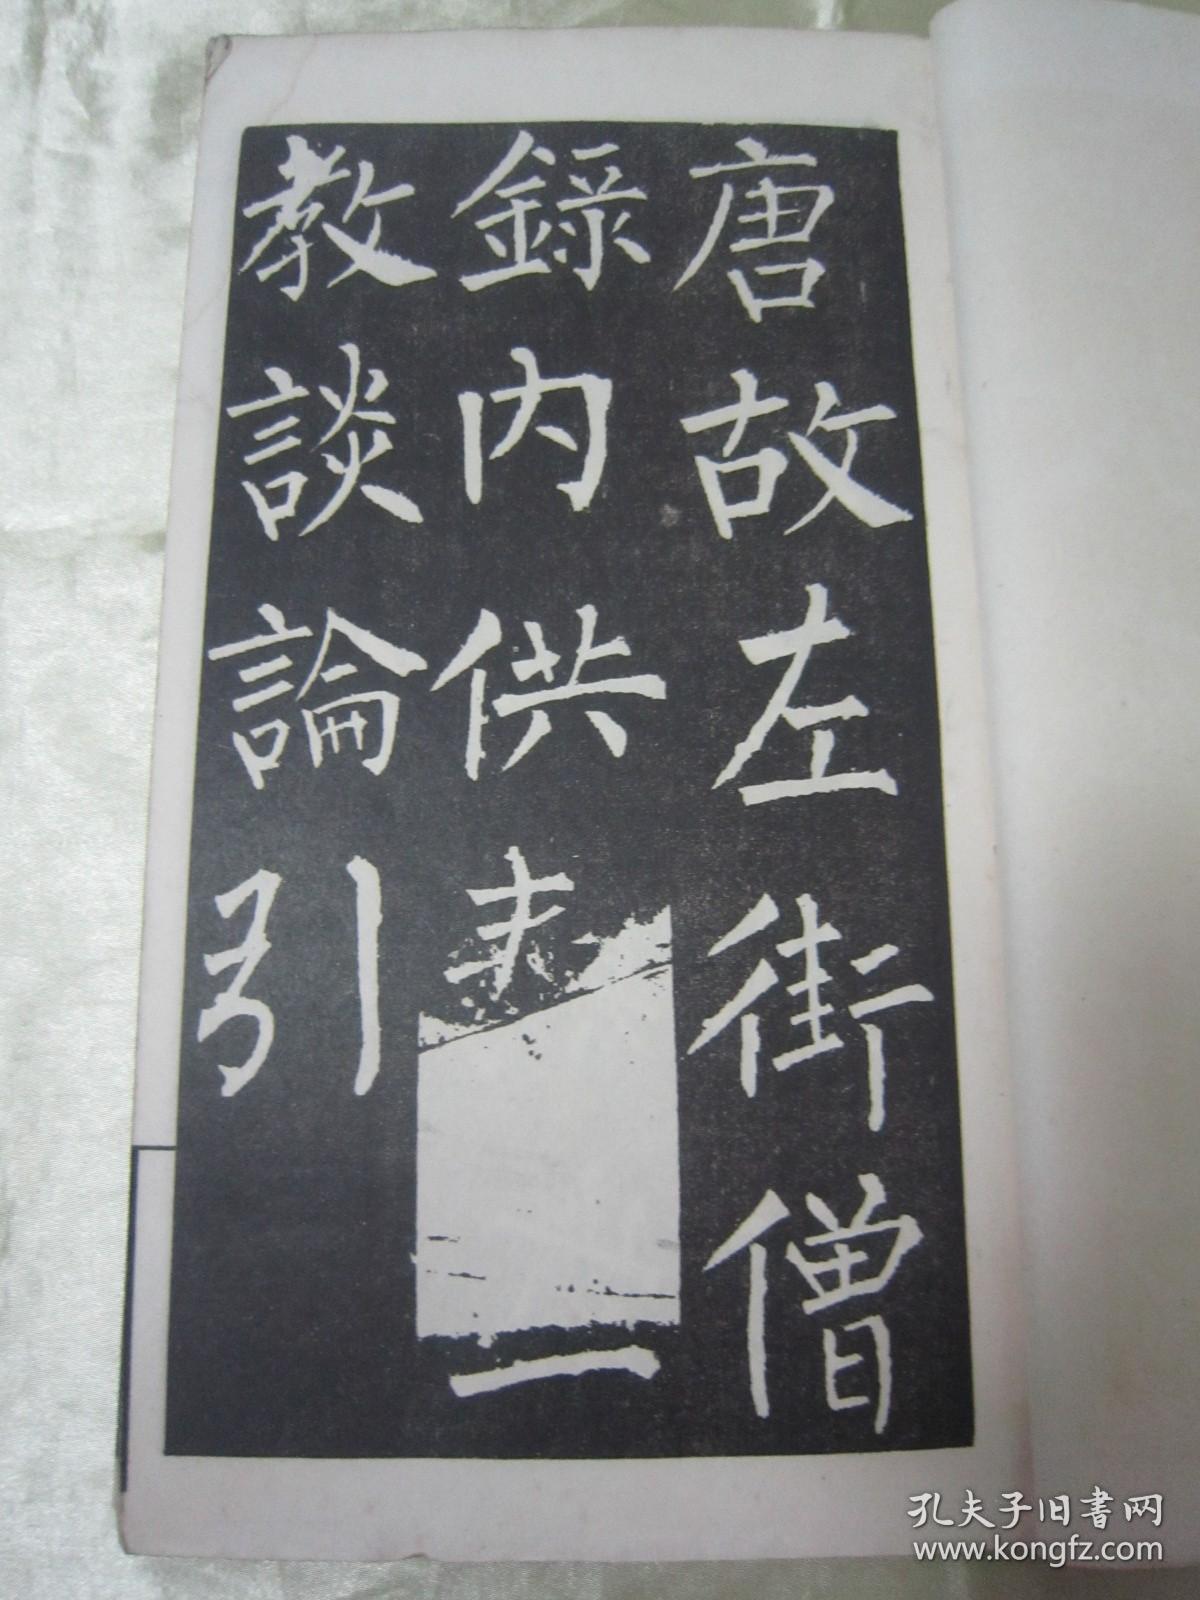 唐故左街僧
錄內供一
教談論引
孔夫子旧書网
www.kongfz.com